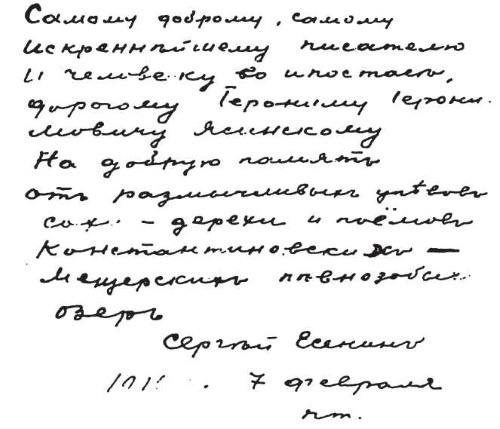 Самому доброму, самому
искреннѣйшему писателю
и человеку во ипостась,
дорогому Іерониму Іерони-
мовичу Ясинскому
На добрую память
отъ размычливыхъ упѣвовъ
сохи-дерехи и поёмовъ
Константиновскихъ —
Мещерскихъ пѣвнозобых
озеръ
Сергѣй Есенинъ
7 февраля
пт.